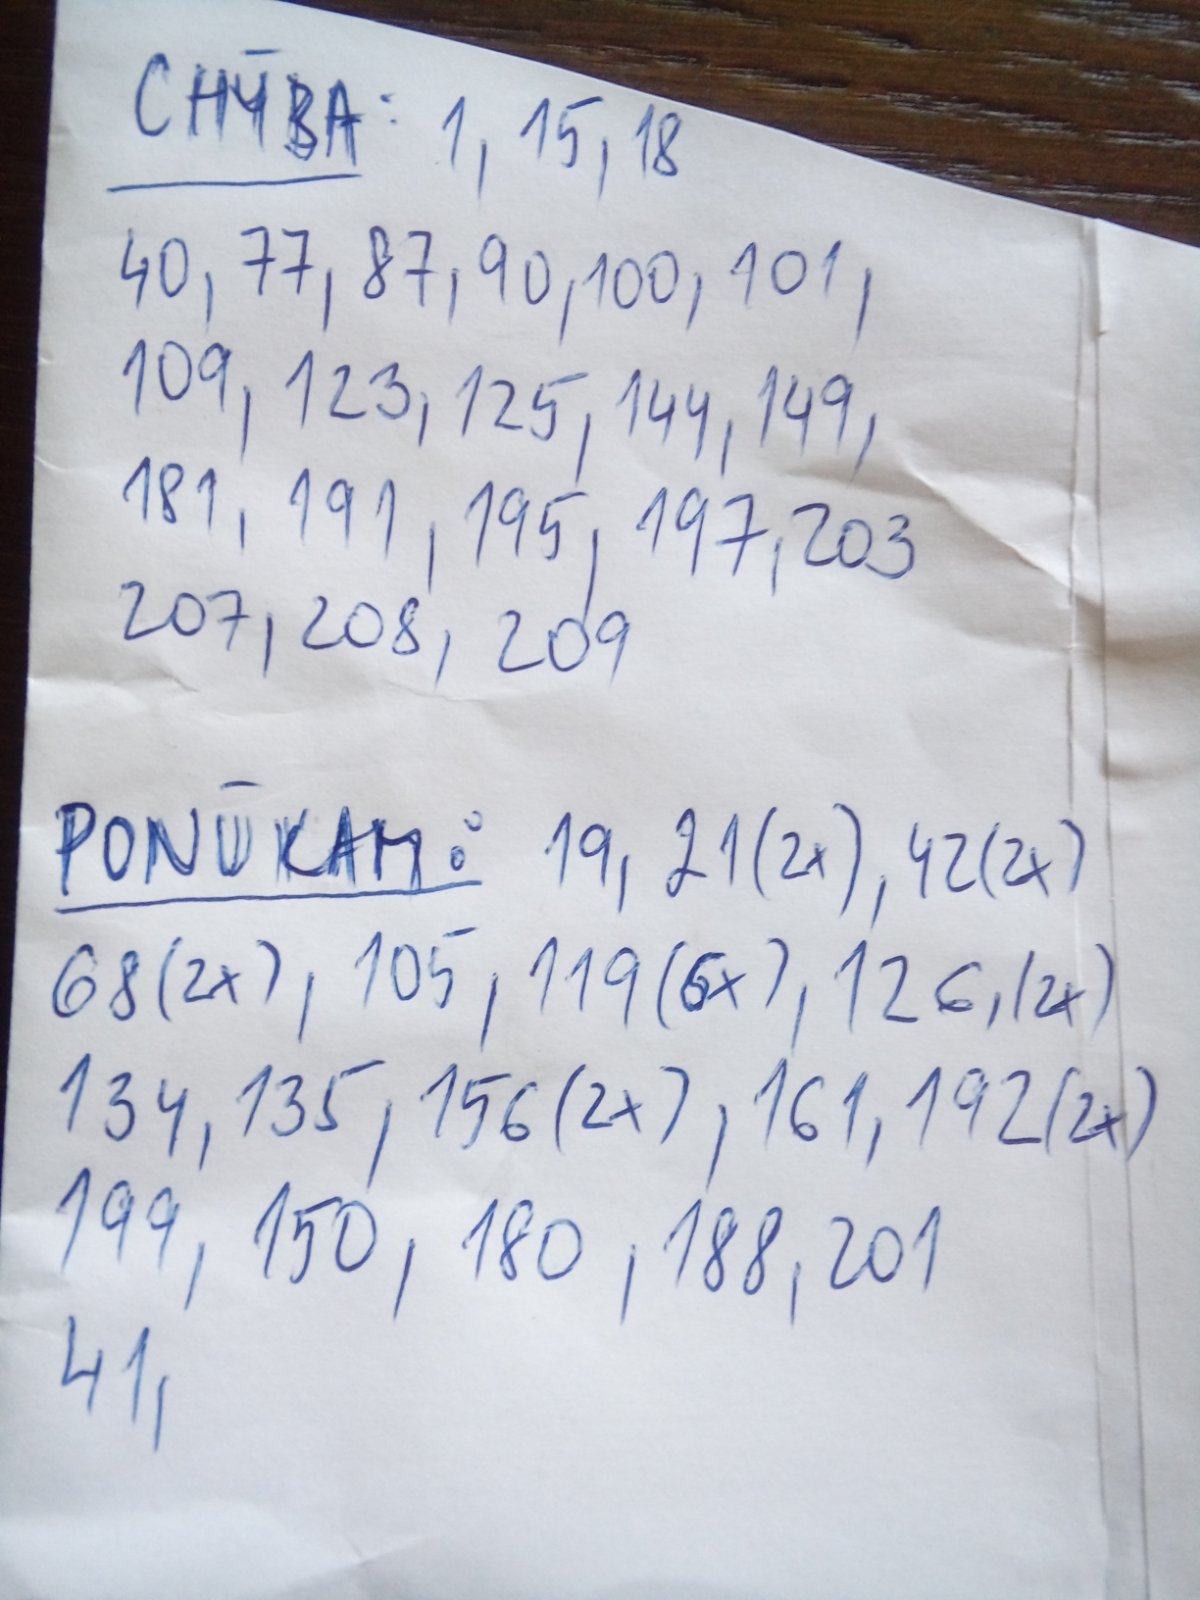 CHÝBA: 1, 15, 18
40, 77, 87, 90, 100, 101,
109, 123, 125, 144, 149,
181, 191, 195, 197, 203
207, 208, 209
PONÚKAM: 19, 21(2x), 42(2x)
68(2x), 105, 119(6x), 126,(2x)
134, 135, 156(2x), 161, 192(2x)
199, 150, 180, 188, 201
41,